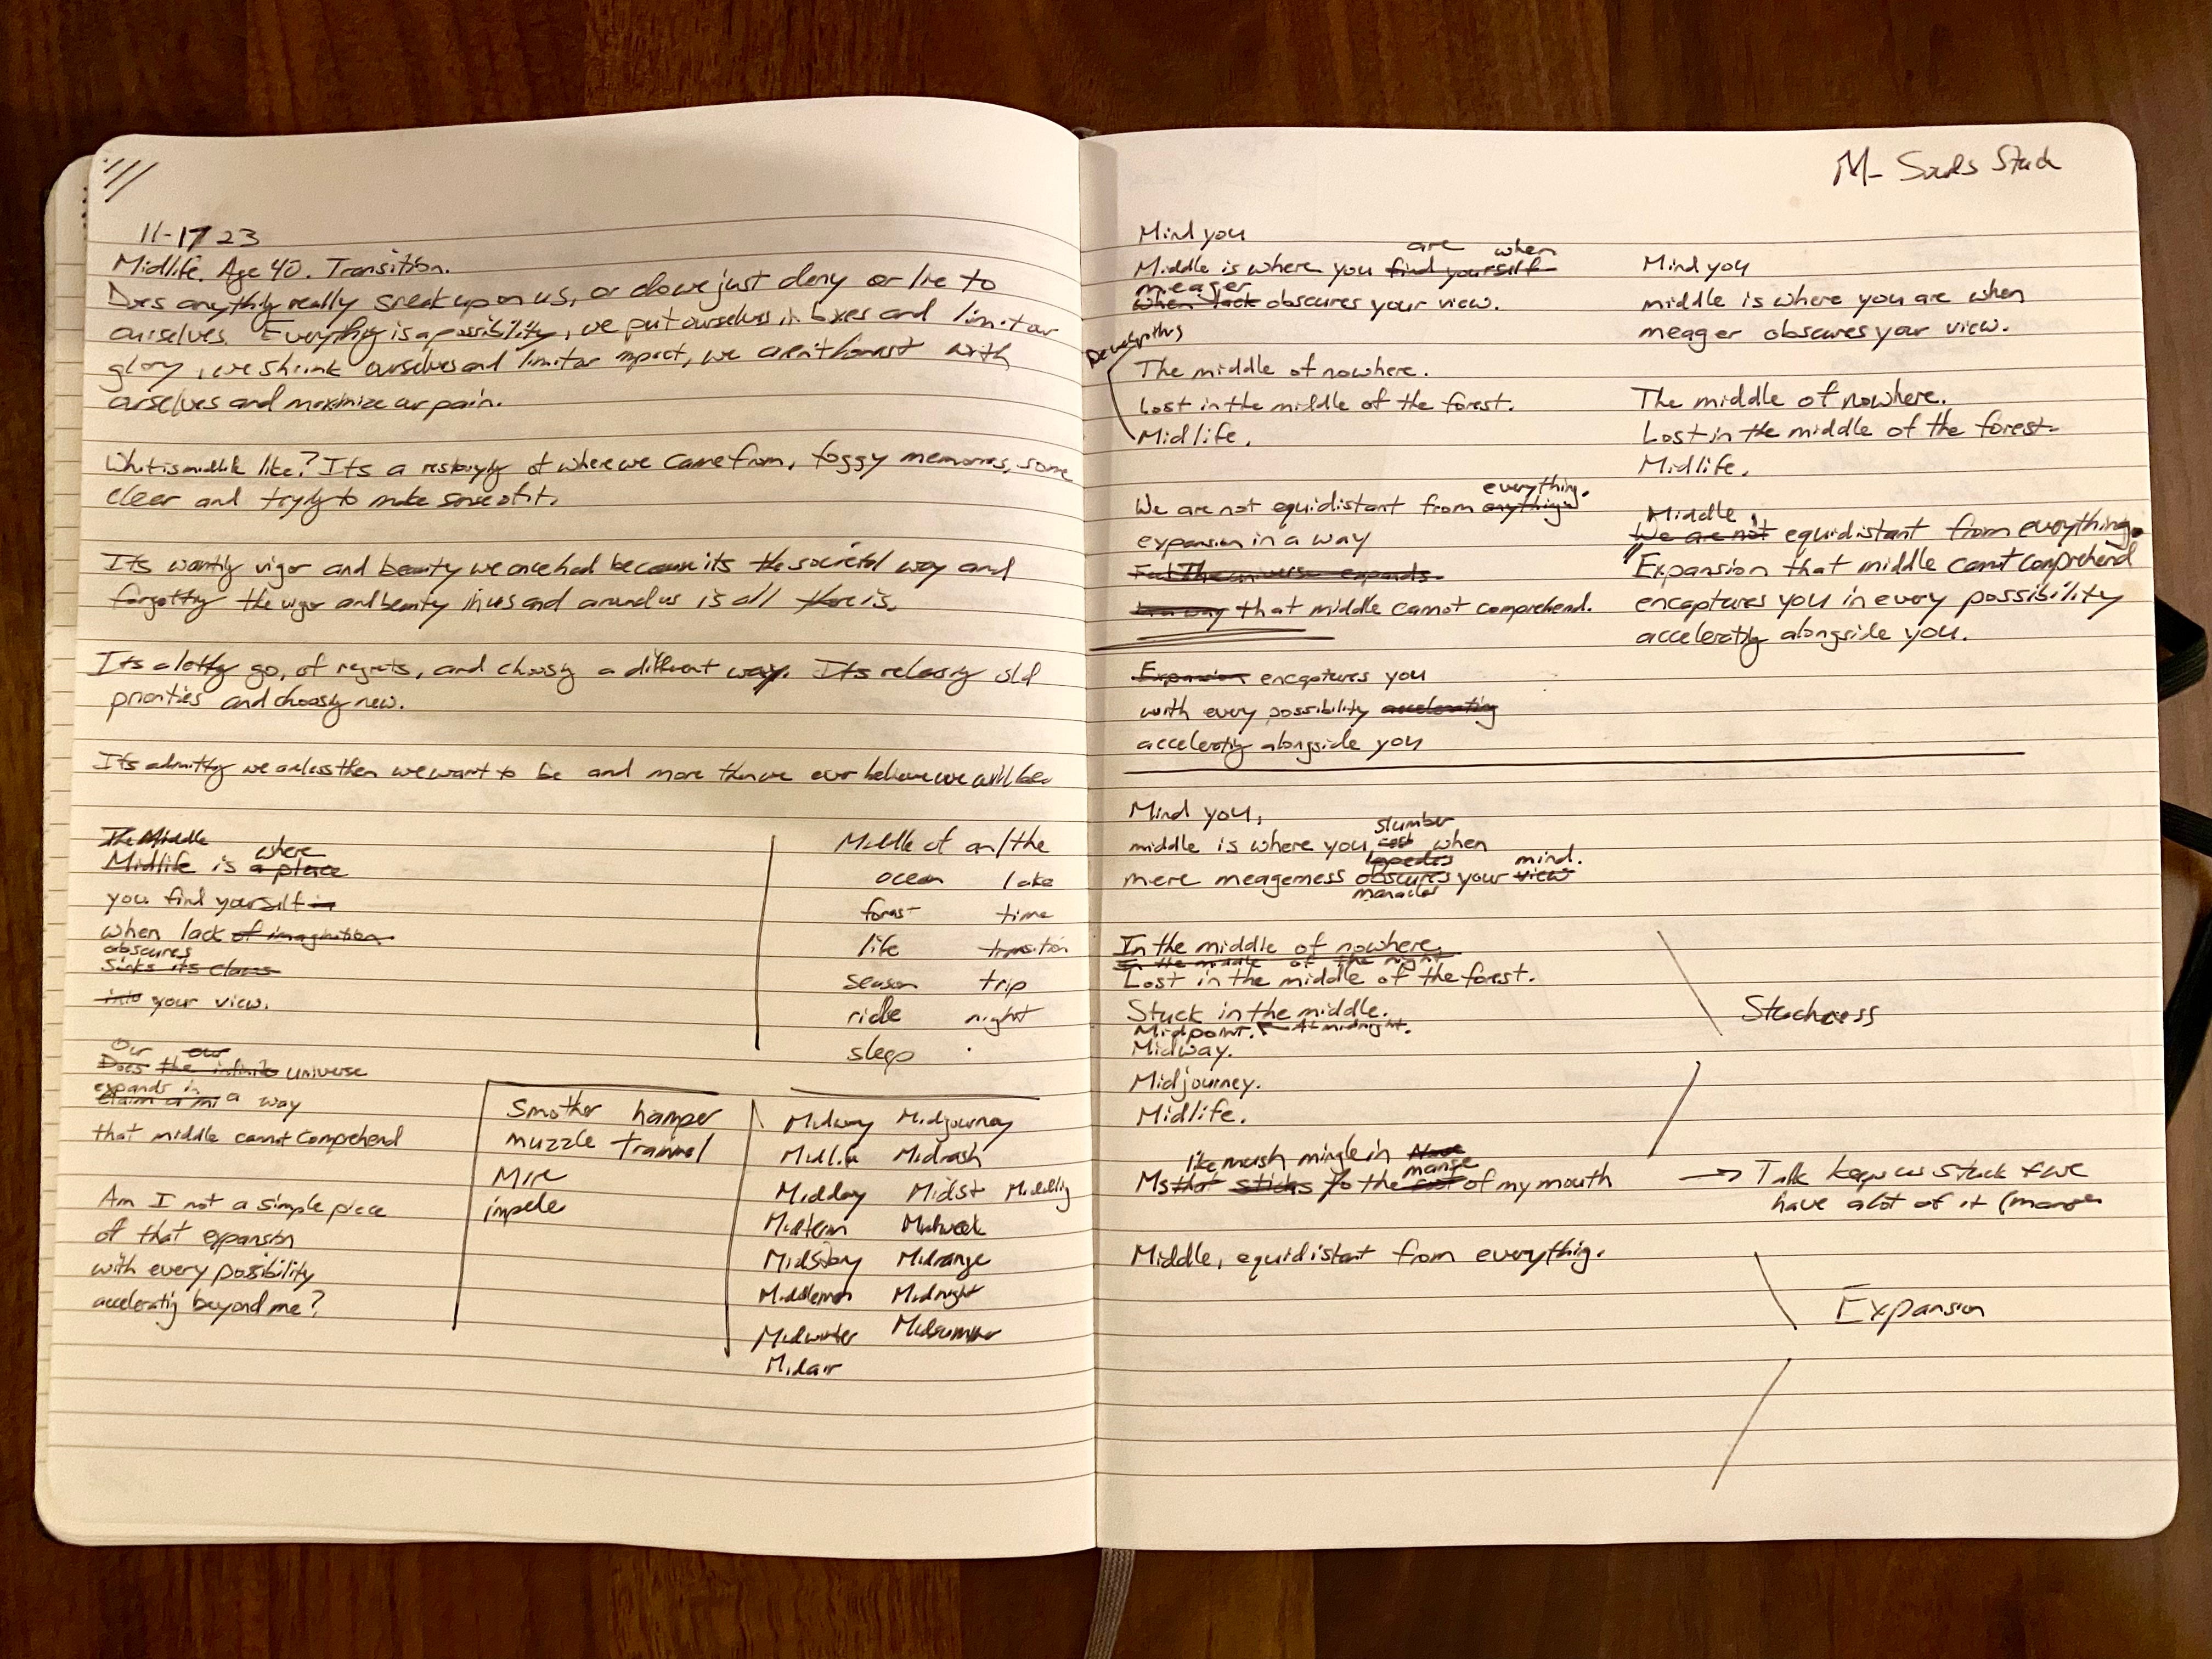 11-17 23
Midlife. Age 40. Transition.
Does anything really sneak up on us, or do we just deny or lie to
ourselves. Everything is a possibility, we put ourselves in boxes and limit our
glory, we shrink ourselves and limit our impact, we aren't honest with
ourselves and maximize our pain.
What is middle like? Its a restorying of where we came from, foggy memories, some
clear and trying to make sense of it.
Its wanting vigor and beauty we once had because its the societal way and
forgetting the vigor and beauty in us and around us is all there is.
Its a letting go, of regrets, and choosing a different way. Its releasing old
priorities and choosing new.
Its admitting we are less then we want to be and more then we ever believe we will be.
The Middle
where
Midlife is a place
you find yourself in
when lack of imagination
obscures
Sinks its claws
into your view.
Our our
Does the infinite universe
expands in
claim a mi a way
that middle cannot comprehend
Am I not a simple piece
of that expansion
with every possibility
accelerating beyond me?
Middle of an/the
ocean lake
forest time
life transition
season trip
ride night
sleep
Smother hamper
muzzle trammel
Mire
impede
Midway Midjourney
Midlife Midrash
Midday Midst Middling
Midterm Midweek
Midstory Midrange
Middleman Midnight
Midwinter Midsummer
Midair
M- Sounds Stuck
Mind you
are when
Middle is where you find yourself
meager
when lack obscures your view.
The middle of nowhere.
Lost in the middle of the forest.
Midlife.
everything.
We are not equidistant from anything
expansion in a way
Feel The universe expands
in a way that middle cannot comprehend.
Expansion encaptures you
with every possibility accelerating
accelerating alongside you
Mind you
middle is where you are when
meager obscures your view.
The middle of nowhere.
Lost in the middle of the forest.
Midlife.
Middle,
We are not equidistant from everything.
Expansion that middle cannot comprehend
encaptures you in every possibility
accelerating alongside you.
Mind you,
slumber
middle is where you when
impedes mind.
mere meagerness obscures your view
manacles
In the middle of nowhere.
In the middle of the night
Lost in the middle of the forest.
Stuck in the middle.
Midpoint. At midnight.
Midway.
Midjourney.
Midlife.
Stuckness
like mush mingle in
manse
Ms that sticks to the roof of my mouth
→ Talk keeps us stuck + we
have a lot of it
Middle, equidistant from everything.
Expansion